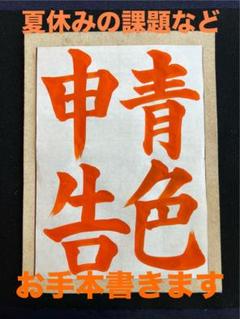 夏休みの課題など
青色
申告
お手本書きます